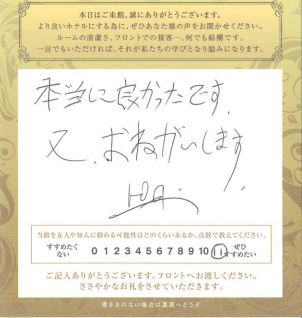 本日はご来館、誠にありがとうございます。
より良いホテルにする為に、ぜひあなた様の声をお聞かせください。
ルームの清潔さ、フロントでの接客…、何でも結構です。
一言でもいただければ、それが私たちの学びとなり励みになります。
本当に良かったです。
又、おねがいします
当館を友人や知人に勧める可能性はどのくらいあるか、点数で教えてください。
すすめたくない 0 1 2 3 4 5 6 7 8 9 10 11 ぜひすすめたい
ご記入ありがとうございます。フロントへお渡しください。
ささやかなお礼をさせていただきます。
書ききれない場合は裏面へどうぞ